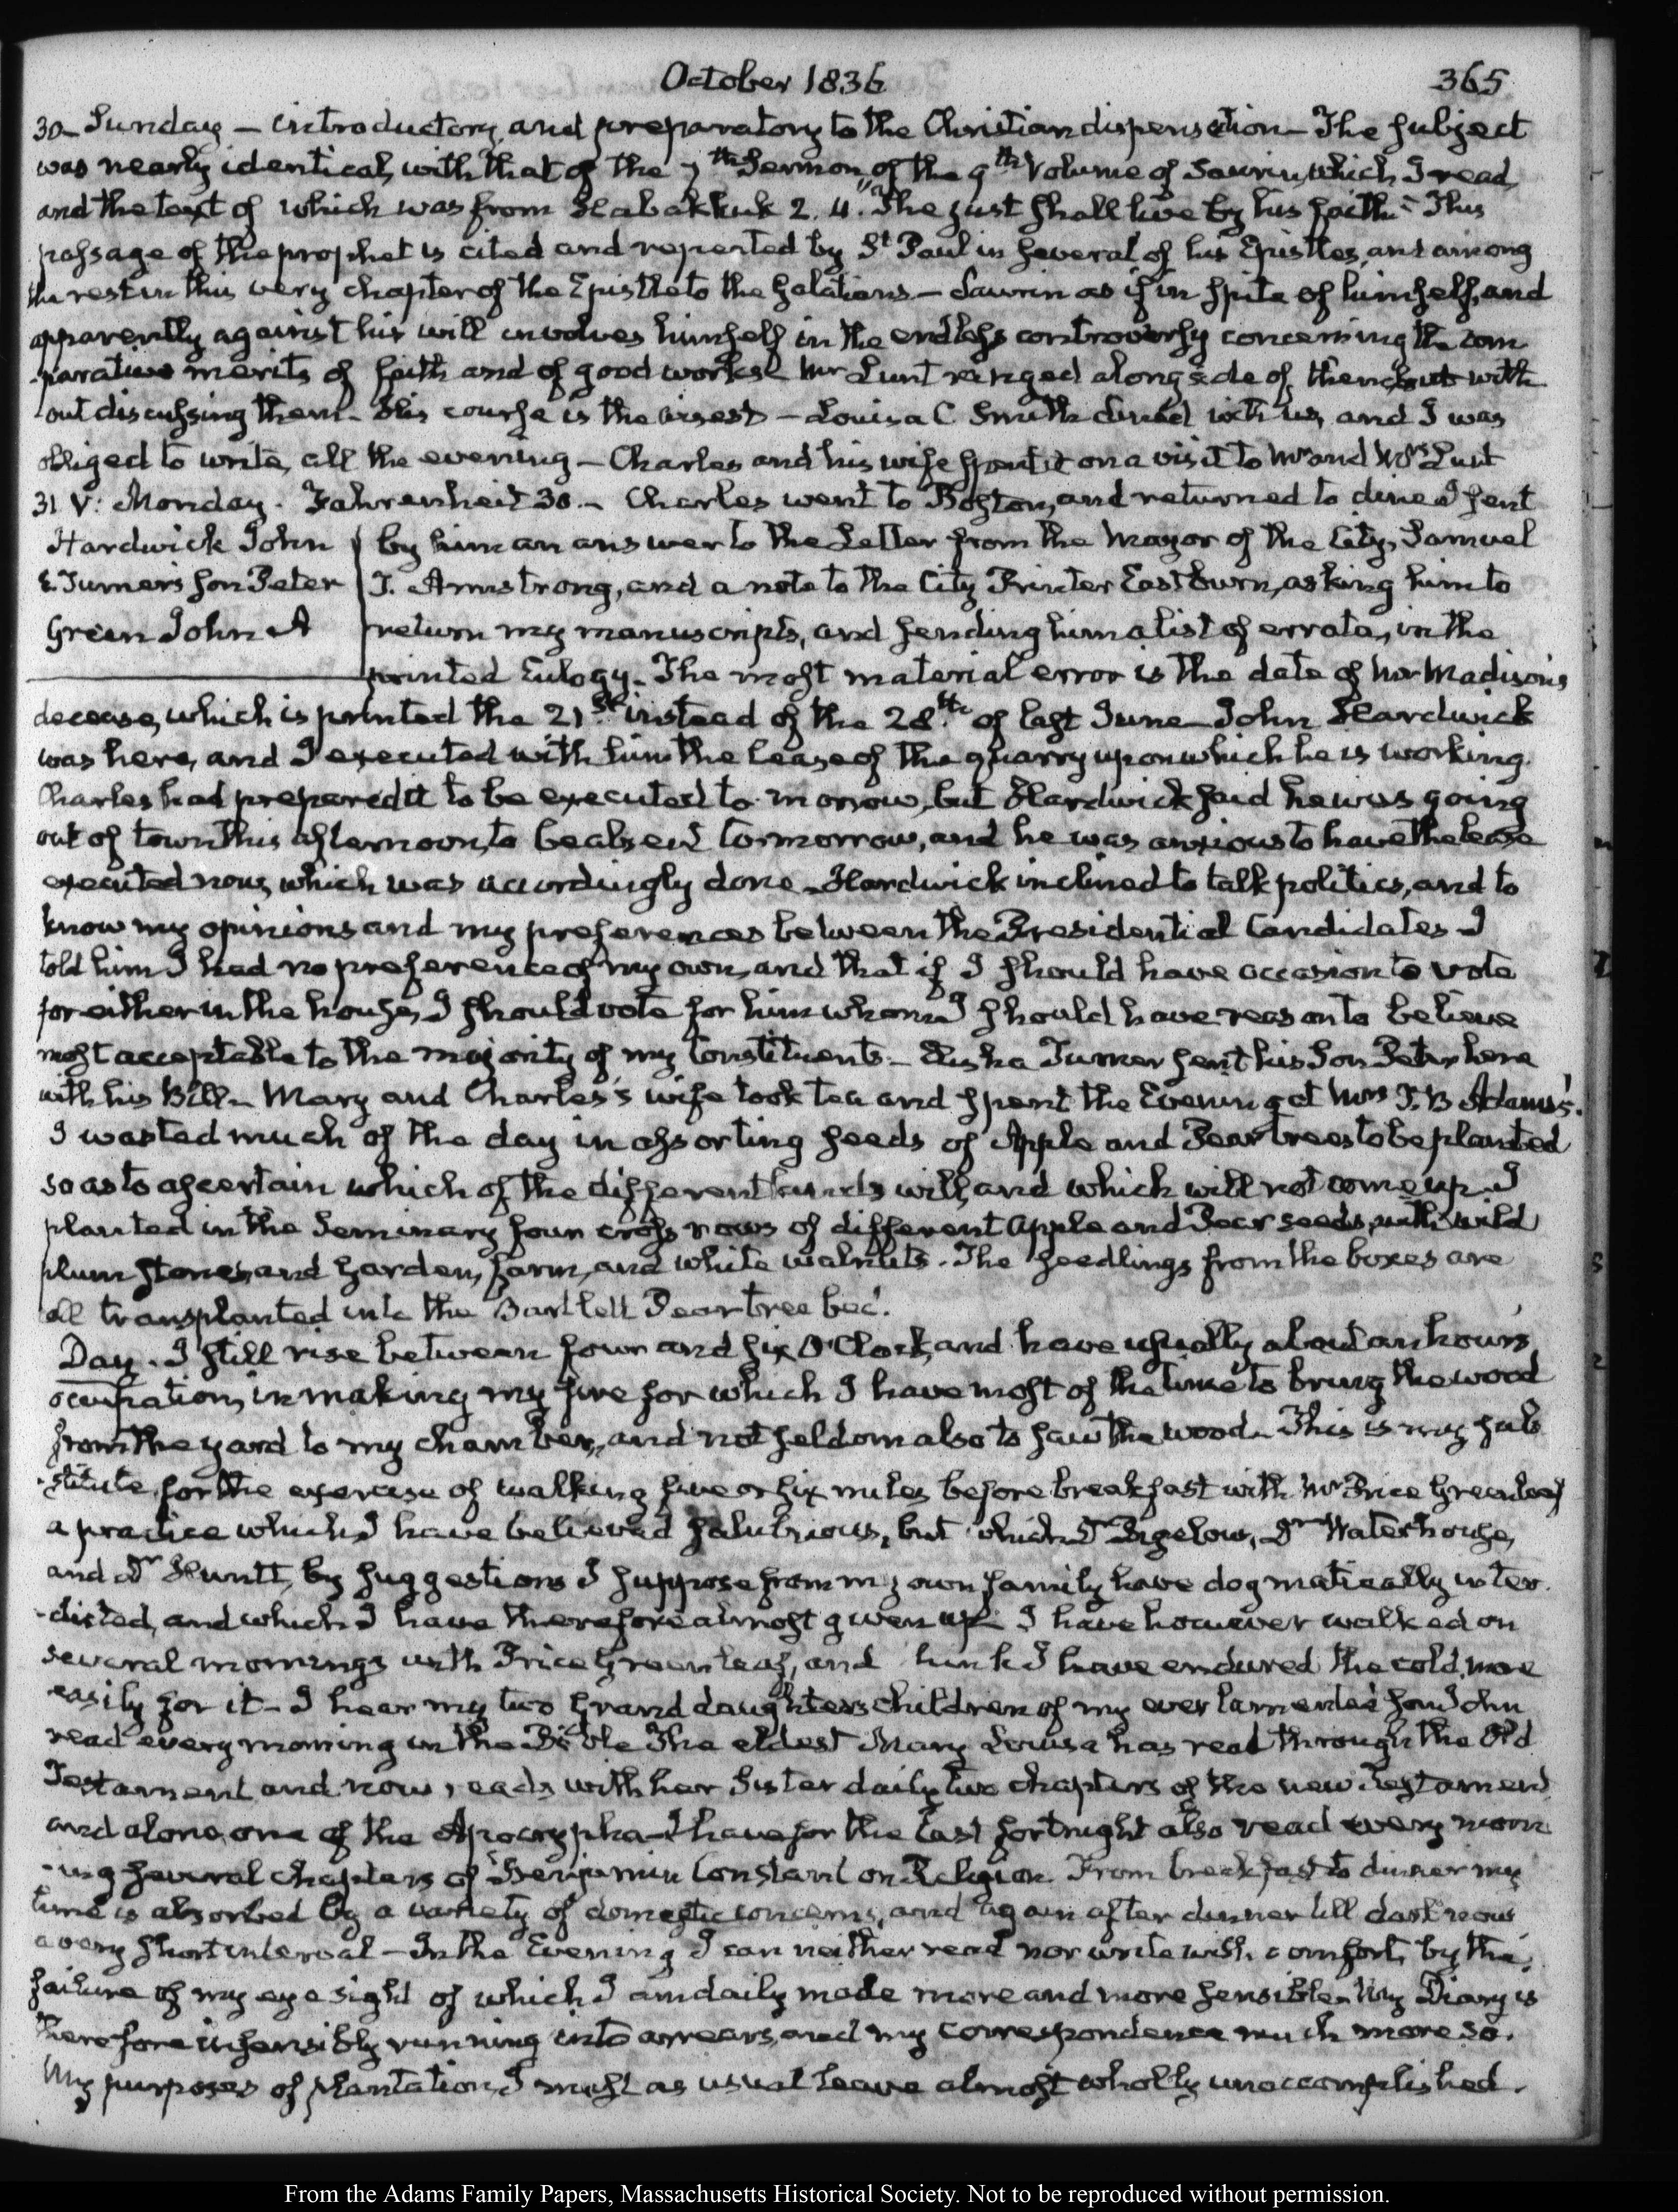 October 1836
365
30. Sunday — introductory, and preparatory to the Christian dispensation — The subject
was nearly identical, with that of the 7th Sermon, of the 9th Volume of Saurin, which I read,
and the text of which was from Habakkuk 2. 4. "The just shall live by his faith" - This
passage of the prophet is cited and repeated by St Paul in several of his Epistles, and among
the rest in this very chapter of the Epistle to the Galatians — Saurin as if in spite of himself, and
apparently against his will involves himself in the endless controversy concerning the com
-parative merits of faith and of good works. Mr Lunt ranged alongside of them, but with
out discussing them. His course is the wisest — Louisa C Smith dined with us, and I was
obliged to write, all the evening — Charles and his wife spent it on a visit to Mr and Mrs Lunt
31 V: Monday. Fahrenheit 30. — Charles went to Boston, and returned to dine I sent
Hardwick John
by him an answer to the Letter from the Mayor of the City, Samuel
E. Turner's son Peter
T. Armstrong, and a note to the City Printer Eastburn, asking him to
Green John A
return my manuscripts, and sending him a list of errata, in the
printed Eulogy. The most material error is the date of Mr Madison's
decease, which is printed the 21st instead of the 28th of last June — John Hardwick
was here, and I executed with him the lease of the quarry upon which he is working.
Charles had prepared it to be executed to-morrow, but Hardwick said he was going
out of town this afternoon, to be absent tomorrow, and he was anxious to have the lease
executed now, which was accordingly done. Hardwick inclined to talk politics, and to
know my opinions and my preferences between the Presidential Candidates I
told him I had no preference of my own, and that if I should have occasion to vote
for either in the house, I should vote for him whom I should have reason to believe
most acceptable to the majority of my Constituents — Elisha Turner sent his Son Peter here
with his Bill — Mary and Charles's wife took tea and spent the Evening at Mrs T. B Adams's.
I wasted much of the day in assorting seeds of Apple and Pear trees to be planted
so as to ascertain which of the different kinds will, and which will not come up. I
planted in the Seminary four cross rows of different Apple and Pear seeds, with wild
plum stones, and Garden, farm, and white walnuts. The seedlings from the boxes are
all transplanted into the Bartlett Pear tree bed.
Day. I still rise between four and six O'Clock, and have usually about an hour's
occupation, in making my fire for which I have most of the time to bring the wood
from the yard to my chamber, and not seldom also to saw the wood. This is my sub
-stitute, for the exercise of walking five or six miles before breakfast with Mr Price Greenleaf
a practice which I have believed salubrious, but which Dr Bigelow, Dr Waterhouse,
and Dr Huntt, by suggestions I suppose from my own family have dogmatically inter
-dicted, and which I have therefore almost given up. I have however walked on
several mornings with Price Greenleaf, and think I have endured the cold, more
easily for it — I hear my two Grand daughters children of my ever lamented son John
read every morning in the Bible The eldest Mary Louisa has read through the Old
Testament and now reads with her Sister daily two chapters of the new Testament
and alone, one of the Apocrypha — I have for the last fortnight also read every morn
-ing several chapters of Benjamin Constant on Religion. From breakfast to dinner my
time is absorbed by a variety of domestic concerns, and again after dinner till dark now
a very short interval — In the Evening I can neither read nor write with comfort, by the
failure of my eye sight of which I am daily made more and more sensible. My Diary is
therefore insensibly running into arrears, and my correspondence much more so.
My purposes of plantation, I must as usual leave almost wholly unaccomplished.
From the Adams Family Papers, Massachusetts Historical Society. Not to be reproduced without permission.